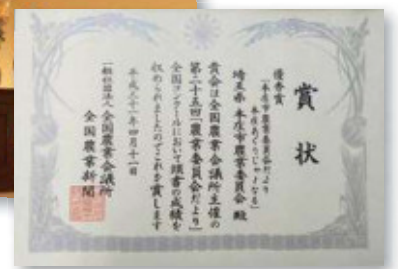 賞状
優秀賞
「本庄市農業委員会だより
本庄あぐりじゃーなる」
埼玉県 本庄市農業委員会 殿
貴会は全国農業会議所主催の
第二十五回「農業委員会だより」
全国コンクールにおいて頭書の成績を
収められましたのでこれを賞します
平成三十一年四月十一日
一般社団法人 全国農業会議所
全国農業新聞